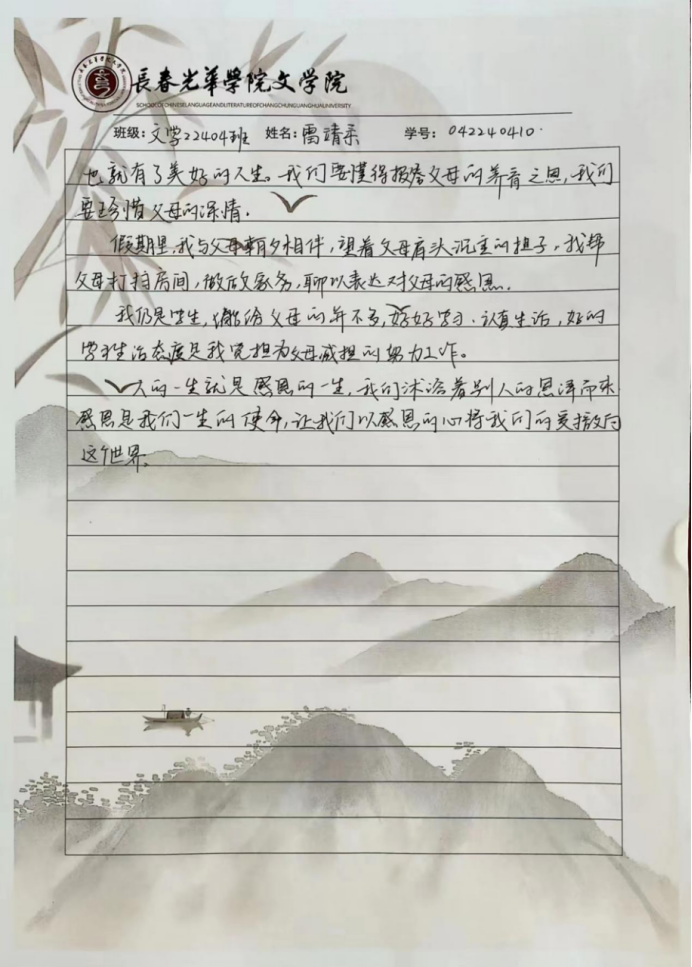 長春光華學院文学院
SCHOOL OF CHINESE LANGUAGE AND LITERATURE OF CHANGCHUN GUANGHUA UNIVERSITY
班级:文学22404班 姓名:雷靖 学号:042240410
也就有了美好的人生。我们要懂得报答父母的养育之恩,我们
要珍惜父母的深情。
假期里,我与父母朝夕相伴,望着父母肩头沉重的担子,我帮
父母打扫房间,做做家务,聊以表达对父母的感恩。
我仍是学生,能给父母的并不多,好好学习、认真生活,好的
学习生活态度是我能担为父母减担的努力工作。
人的一生就是感恩的一生,我们沐浴着别人的恩泽而来
感恩是我们一生的使命,让我们以感恩的心将我们的爱撒向
这个世界。